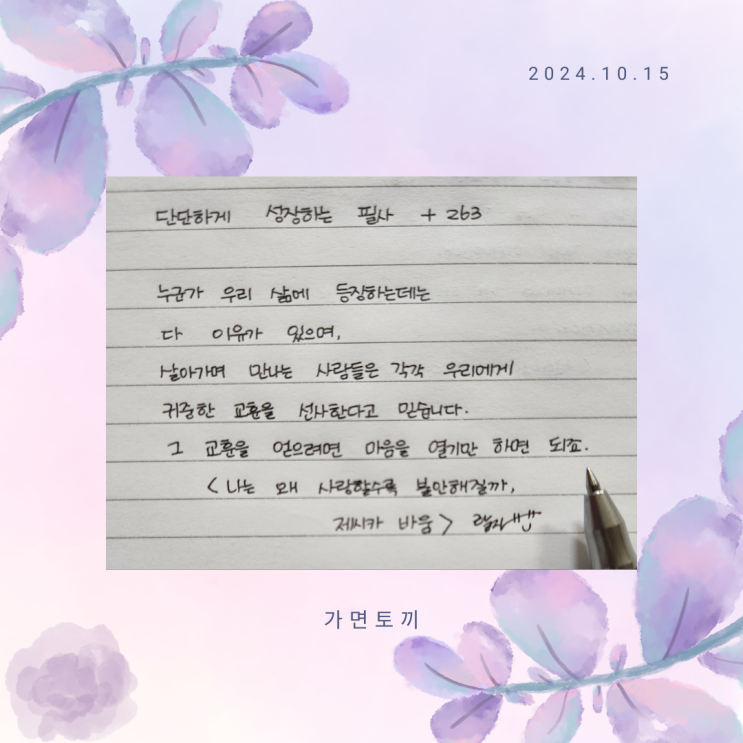 2024.10.15
단단하게 성장하는 필사 + 263
누군가 우리 삶에 등장하는데는
다 이유가 있으며,
살아가며 만나는 사람들은 각각 우리에게
귀중한 교훈을 선사한다고 믿습니다.
그 교훈을 얻으려면 마음을 열기만 하면 되죠.
< 나는 왜 사랑할수록 불안해질까,
제시카 바움 >
가면토끼